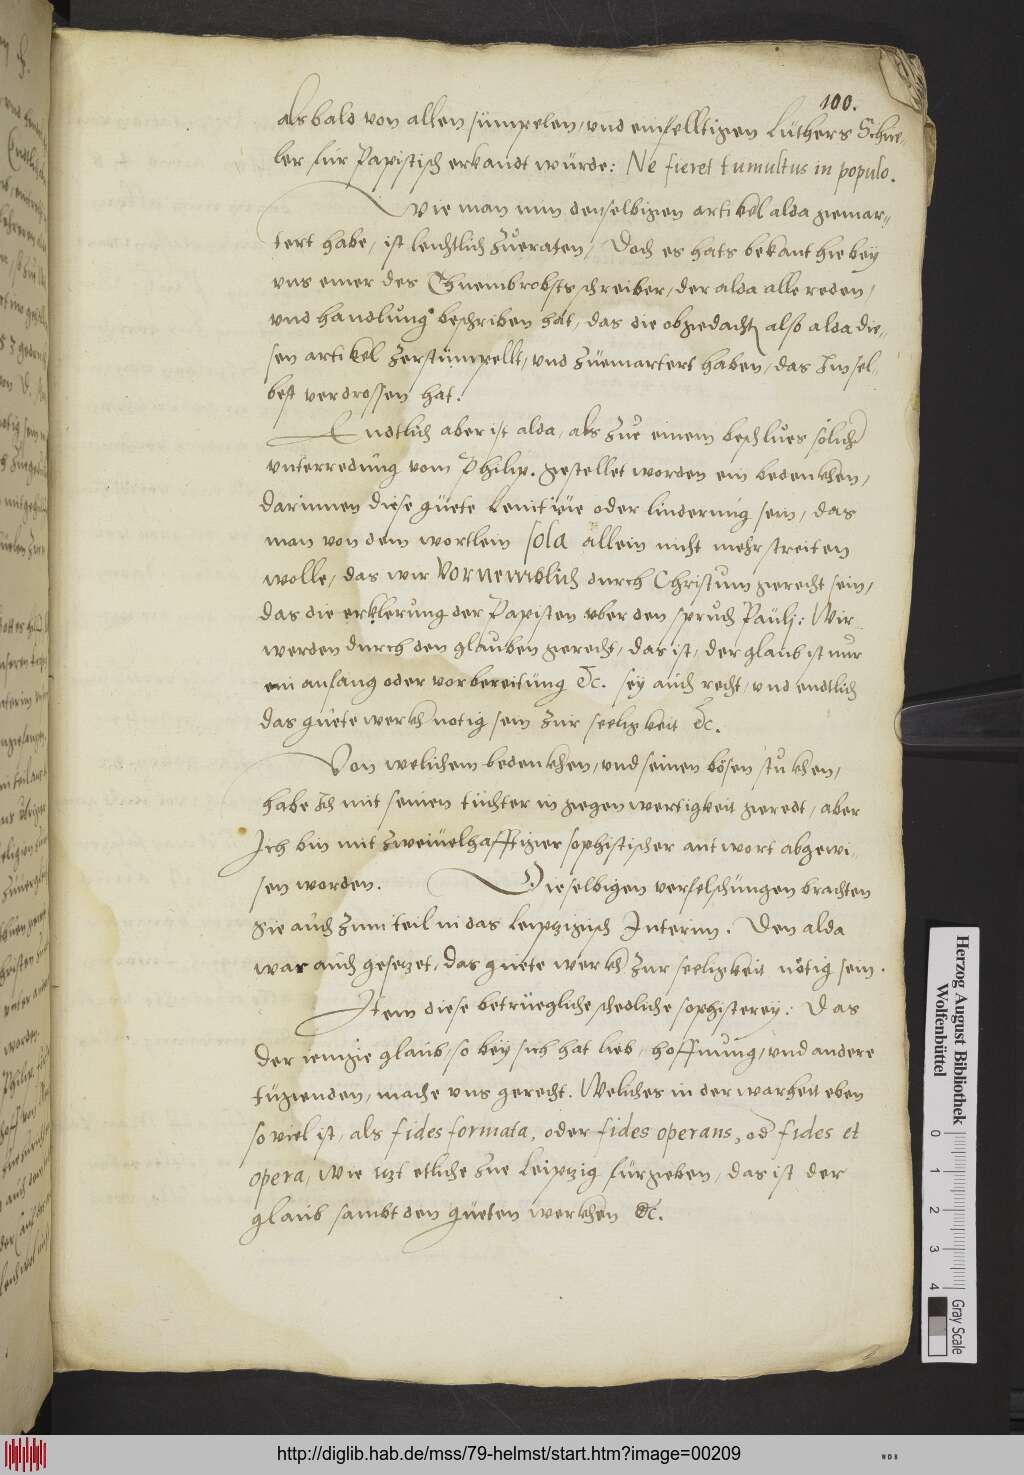 100.
alsbald von allen simpelen, vnd einfelltigen Luthers Schue-
ler für Papistisch erkandt würde: Ne fieret tumultus in populo.
Wie man nun denselbigen artikel alda gemar-
tert habe, ist leichtlich zu eraten, Doch es hats bekant hiebey
vns einer des Thuembrobsts schreiber, der alda alle reden,
vnd handlung beschriben hat, das die obgedacht also alda die-
sen artikel zerstümpellt, vnd züemartert haben, das Im sel-
best verdrossen hat.
Endtlich aber ist alda, als zue einem beschlues solicher
vnterredung vom Philip. gestellet worden ein bedenkhen,
darinnen diese guete Lenitiue oder linderung sein, das
man von dem wortlein sola allein nicht mehr streiten
wolle, das wir Vornemblich durch Christum gerecht sein,
das die erklerung der Papisten vber den spruch Paulj: Wir
werden durch den glauben gerecht, das ist, der glaub ist nur
ein anfang oder vorbereitung &c. sey auch recht, vnd endtlich
das guete werkh notig sein zur seeligkeit &c.
Von welichem bedenkhen, vnd seinen bösen stukhen,
habe Ich mit seinen tichter in gegenwertigkeit geredt, aber
Ich bin mit zweiuelhafftiger sophistischer antwort abgewi-
sen worden. Dieselbigen verfelschungen brachten
sie auch zum teil in das Leiptzigisch Interim. Den alda
war auch gesetzet, das guete werkh zur seeligkeit nötig sein.
Item diese betruegliche schedliche sophisterey: Das
der ienige glaub, so bey sich hat lieb, hoffnung, vnd andere
tugenden, mache vns gerecht. Weliches in der warheit eben
so viel ist, als fides formata, oder fides operans, od fides et
opera, wie itzt etliche zue Leiptzig fürgeben, das ist der
glaub sambt den gueten werkhen &c.
Herzog August Bibliothek
Wolfenbüttel
0 1 2 3 4
Gray Scale
http://diglib.hab.de/mss/79-helmst/start.htm?image=00209